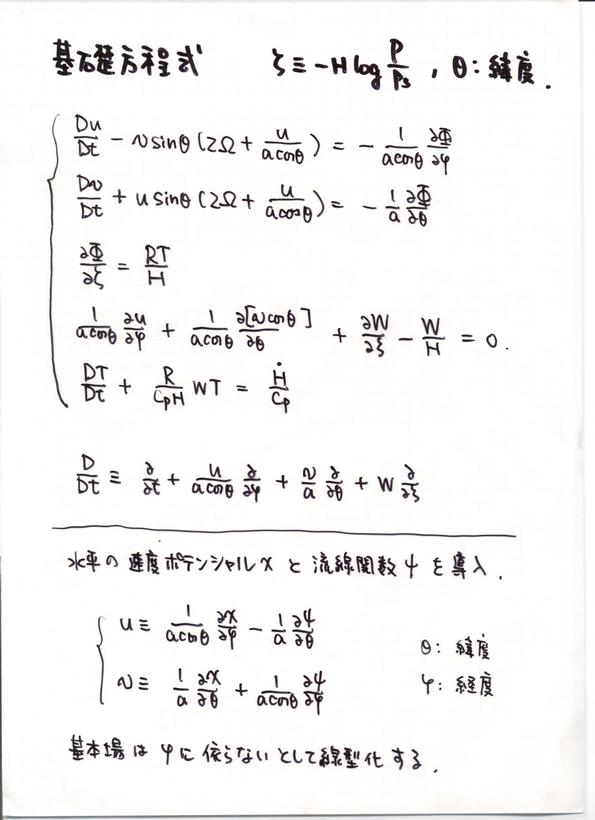 基礎方程式 ζ ≡ -H log P/Ps , θ: 緯度.
Du/Dt - v sinθ (2Ω + u/(a cosθ)) = - 1/(a cosθ) ∂Φ/∂φ
Dv/Dt + u sinθ (2Ω + u/(a cosθ)) = - 1/a ∂Φ/∂θ
∂Φ/∂ζ = RT/H
1/(a cosθ) ∂u/∂φ + 1/(a cosθ) ∂[v cosθ]/∂θ + ∂W/∂ζ - W/H = 0.
DT/Dt + R/(CpH) WT = Ḣ/Cp
D/Dt ≡ ∂/∂t + u/(a cosθ) ∂/∂φ + v/a ∂/∂θ + W ∂/∂ζ
水平の速度ポテンシャルχと流線関数ψを導入.
u ≡ 1/(a cosθ) ∂χ/∂φ - 1/a ∂ψ/∂θ
θ: 緯度
v ≡ 1/a ∂χ/∂θ + 1/(a cosθ) ∂ψ/∂φ
φ: 経度
基本場はφに依らないとして線型化する.